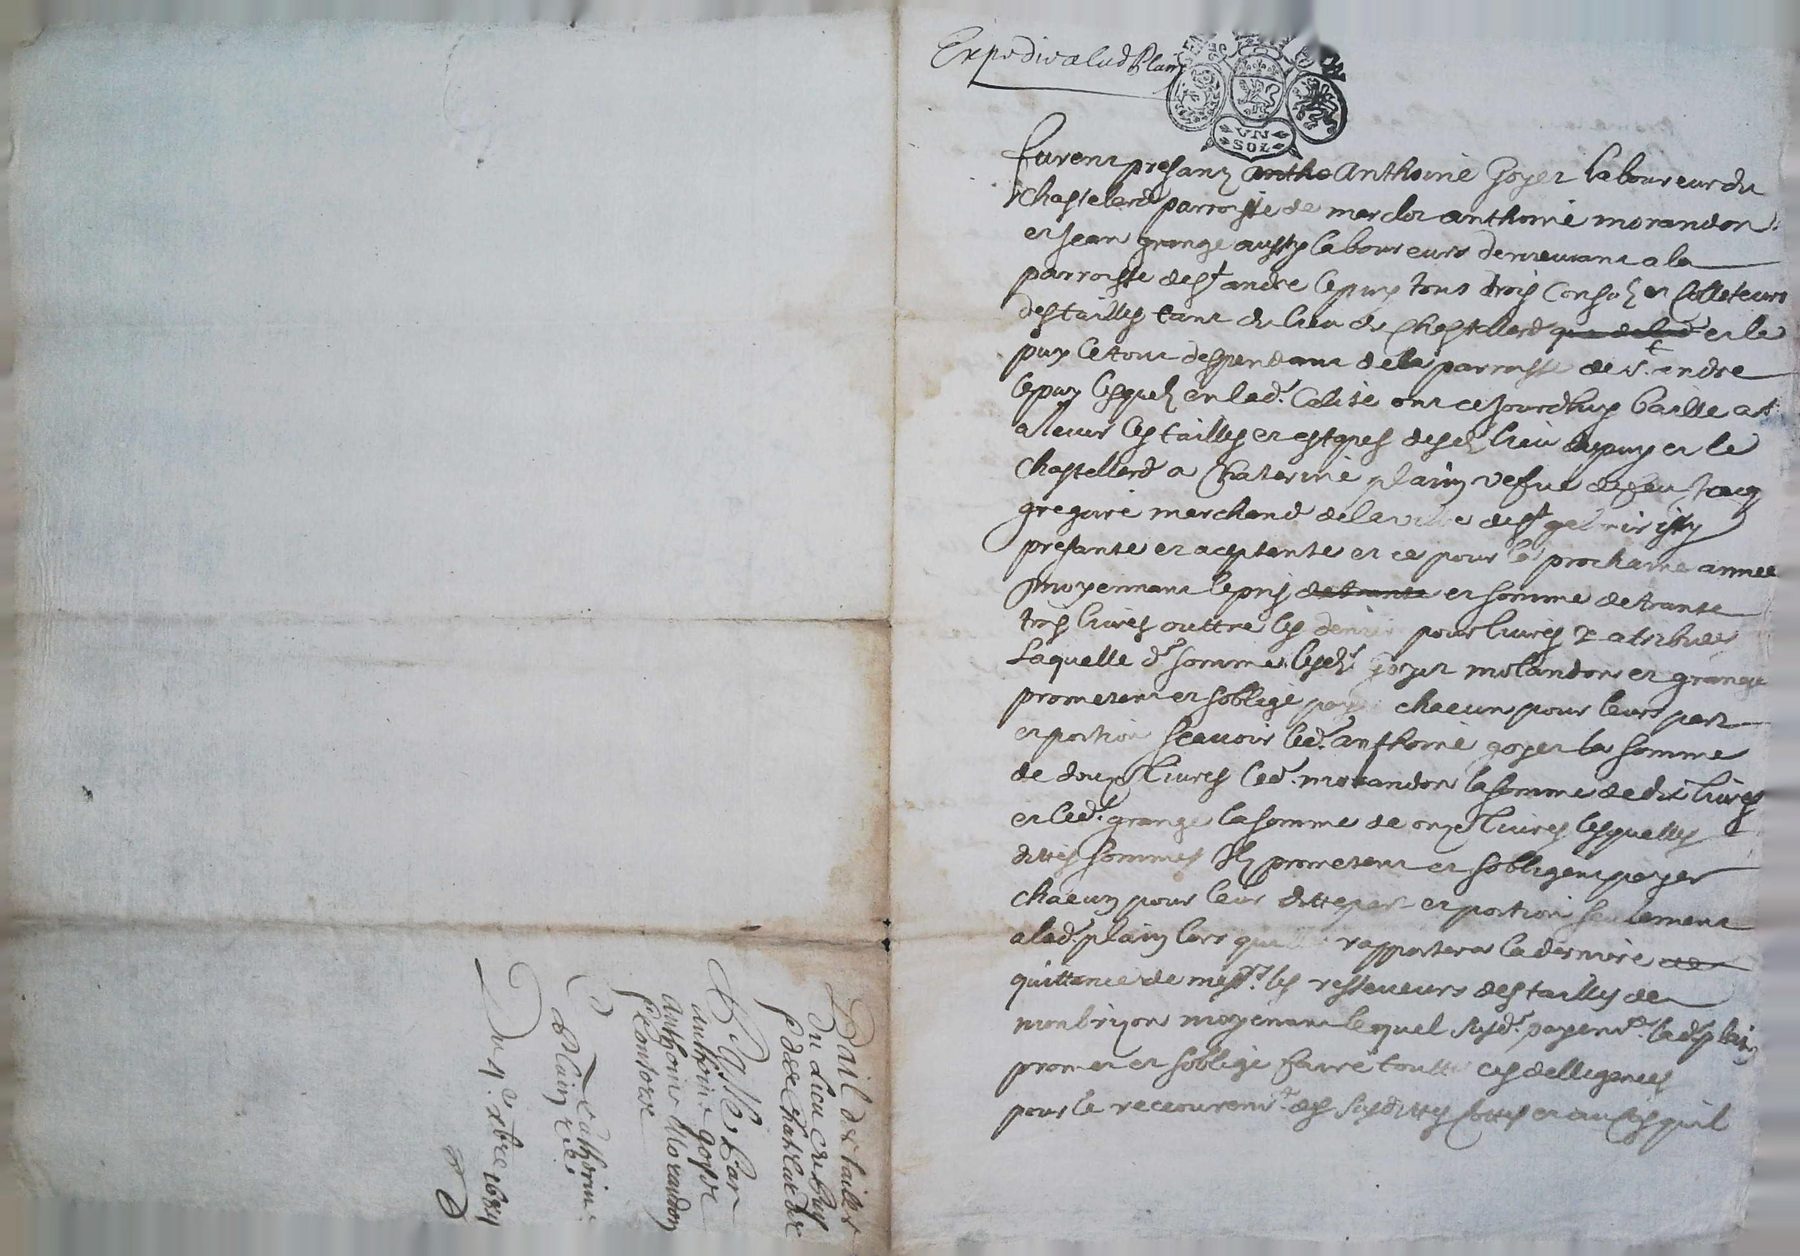 Expedié a lad Plain
UN
SOL
furent presanz antho Anthoine Goyet laboureur du
Chastelard parroisse de marclot anthoine morandon
et Jean grange aussy laboureurs demeurant a la
parroisse de st andre le puy tous trois Consulz et Colleteurs
des tailles tant du lieu du Chastellard que delad et le
puy le tout despendant de la parroisse de st andre
le puy lesquelz en lad. Calité ont ce jourdhuy baillé a
a lever les tailles et de sd lieu du puy et le
Chastellard a Chaterine plainy vefve de feu Jacq
gregoire marchand de la ville de st galmir issy
presante et aceptante et ce pour la prochaine année
moyennant le pris de trante et somme de trante
trois livres outtre les deniers pour livres atribués
Laquelle d. somme lesd. Goyet molandon et grange
prometent et soblige payer chacun pour leurs part
et portion scavoir led. anthoine goyet la somme
de douze livres led. morandon la somme de dix livres
et led. grange la somme de onze livres lesquelles
dittes sommes Ilz prometent et sobligent payer
chacun pour leur ditte part et portion seulement
a lad. plainy lors quelle rapportera la derniere
quittance de messrs. les resseveurs des tailles de
monbrizon moyenant lequel susd. payemt. lad. plainy
promet et soblige faire touttes ces delligences
pour le recouvremt. des susdittes Cottes et au Cas quil
Bail de tailles
du Lieu de Puy
et de Chatelard
Passé par
anthoine goyet
anthoine Morandon
et Consors
A Catherine
Plainy
Du 4e. xbre 1684